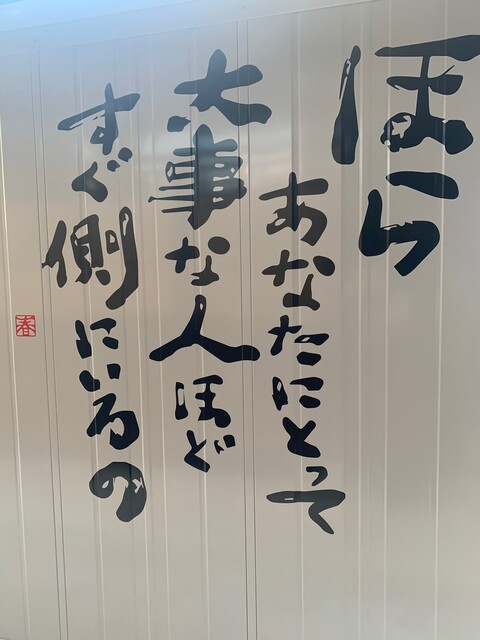 ほら
あなたにとって
大事な人ほど
すぐ側にいるの
春